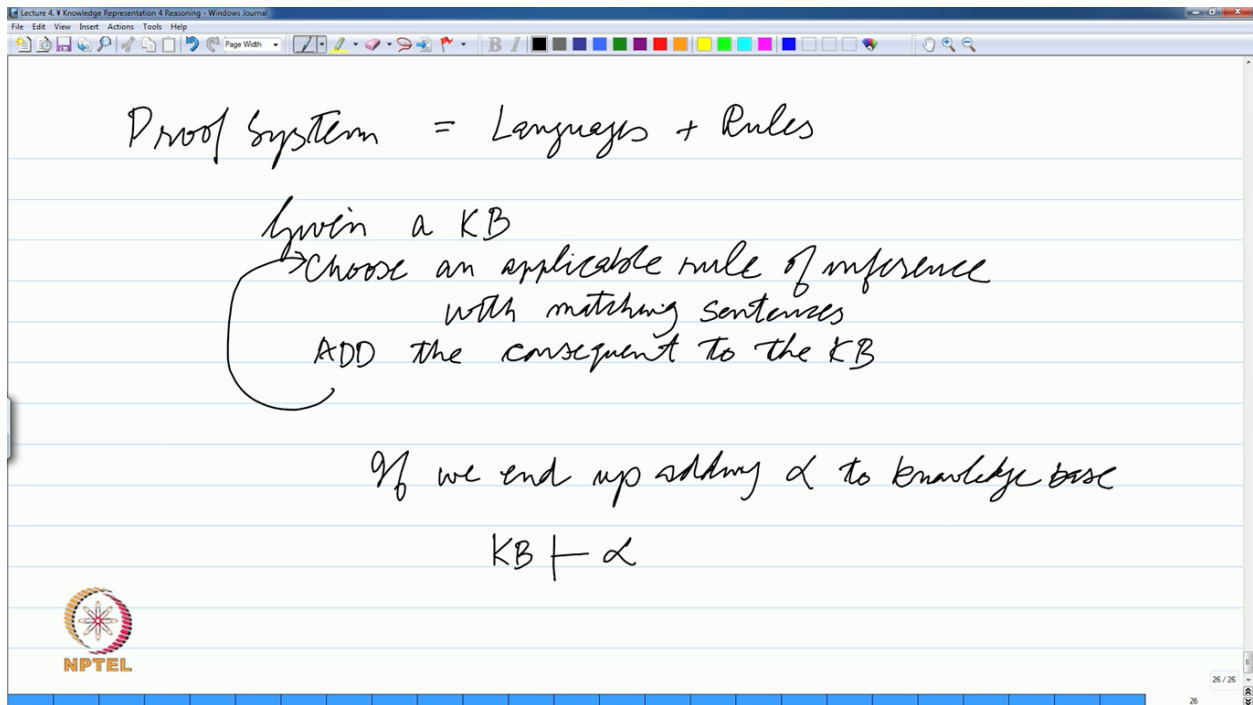 Lecture 4. ¥ Knowledge Representation 4 Reasoning - Windows Journal
File Edit View Insert Actions Tools Help
Page Width B I
Proof System = Languages + Rules
Given a KB
Choose an applicable rule of inference
with matching sentences
ADD the consequent to the KB
If we end up adding α to knowledge base
KB ⊢ α
NPTEL
26 / 26
26